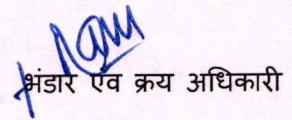 भंडार एंव क्रय अधिकारी